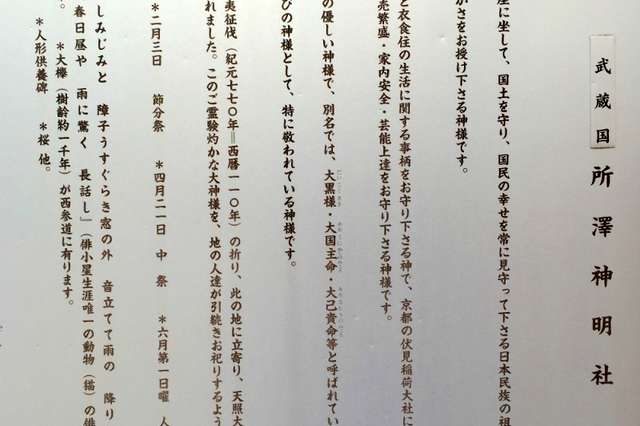 武蔵国 所澤神明社
座に坐して、国土を守り、国民の幸せを常に見守って下さる日本民族の祖
かさをお授け下さる神様です。
と衣食住の生活に関する事柄をお守り下さる神で、京都の伏見稲荷大社に
売繁盛・家内安全・芸能上達をお守り下さる神様です。
の優しい神様で、別名では、大黒様・大国主命・大己貴命等と呼ばれてい
びの神様として、特に敬われている神様です。
夷征伐（紀元七七〇年＝西暦一一〇年）の折り、此の地に立寄り、天照大
れました。このご霊験灼かな大神様を、地の人達が引続きお祀りするよう
＊二月三日 節分祭 ＊四月二一日 中祭 ＊六月第一日曜 人
しみじみと 障子うすぐらき窓の外 音立てて雨の 降り
春日昼や 雨に驚く 長話し』（俳小星生涯唯一の動物（猫）の俳
＊大欅（樹齢約一千年）が西参道に有ります。
＊人形供養碑 ＊桜 他。